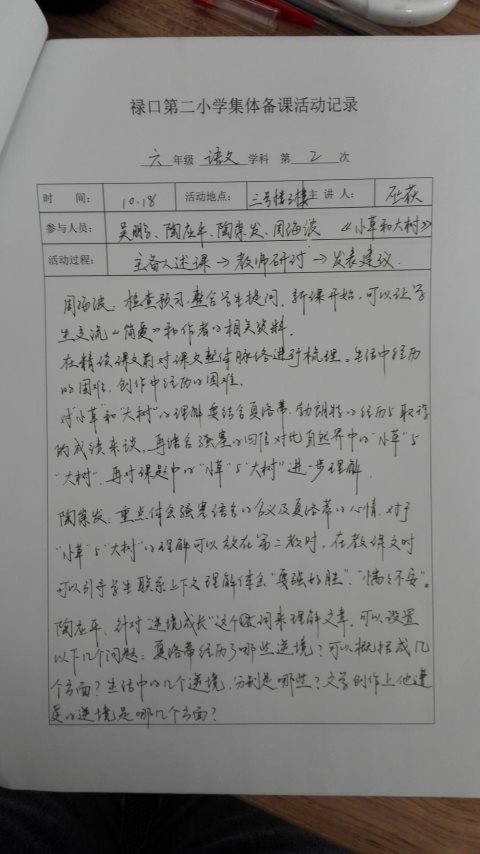 禄口第二小学集体备课活动记录
六 年级 语文 学科 第 2 次
时 间: 10.18 活动地点: 三号楼3楼 主 讲 人:
参与人员: 吴鹏、陶应平、陶荣发、周海波 《小草和大树》
活动过程: 主备人述课→教师研讨→发表建议.
周海波:检查预习,整合学生提问,新课开始,可以让学
生交流《简爱》和作者的相关资料.
在精读课文前对课文整体脉络进行梳理。生活中经历
的困难,创作中经历的困难.
对"小草"和"大树"的理解要结合夏洛蒂·勃朗特的经历与取得
的成绩来谈,再结合骚塞的回信对比自然界中的"小草"与
"大树",再对课题中的"小草"与"大树"进一步理解.
陶荣发:重点体会骚塞信的含义及夏洛蒂的心情.对于
"小草"与"大树"的理解可以放在第二教时,在教课文时
可以引导学生联系上下文理解体会"要强好胜"、"惴惴不安"。
陶应平:针对"逆境成长"这个词来理解文章。可以设置
以下几个问题:夏洛蒂经历了哪些逆境?可以概括成几
个方面?生活中的几个逆境,分别是哪些?文学创作上他遭
遇的逆境是哪几个方面?